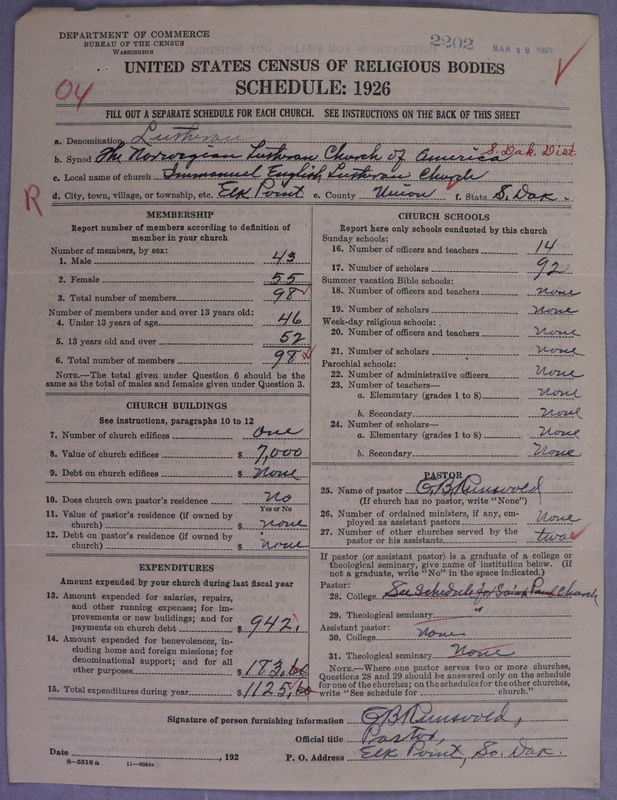 DEPARTMENT OF COMMERCE
BUREAU OF THE CENSUS
WASHINGTON
2202
MAR 18 1927
UNITED STATES CENSUS OF RELIGIOUS BODIES
SCHEDULE: 1926
04
FILL OUT A SEPARATE SCHEDULE FOR EACH CHURCH. SEE INSTRUCTIONS ON THE BACK OF THIS SHEET
a. Denomination Lutheran
b. Synod The Norwegian Lutheran Church of America S. Dak. Dist.
c. Local name of church Immanuel English Lutheran Church
R
d. City, town, village, or township, etc. Elk Point e. County Union f. State S. Dak.
MEMBERSHIP
Report number of members according to definition of
member in your church
Number of members, by sex:
1. Male 43
2. Female 55
3. Total number of members 98
Number of members under and over 13 years old:
4. Under 13 years of age 46
5. 13 years old and over 52
6. Total number of members 98
NOTE.—The total given under Question 6 should be the
same as the total of males and females given under Question 3.
CHURCH BUILDINGS
See instructions, paragraphs 10 to 12
7. Number of church edifices one
8. Value of church edifices $ 7,000
9. Debt on church edifices $ None
10. Does church own pastor's residence No
Yes or No
11. Value of pastor's residence (if owned by
church) $ none
12. Debt on pastor's residence (if owned by
church) $ none
EXPENDITURES
Amount expended by your church during last fiscal year
13. Amount expended for salaries, repairs,
and other running expenses; for im-
provements or new buildings; and for
payments on church debt $ 942
14. Amount expended for benevolences, in-
cluding home and foreign missions; for
denominational support; and for all
other purposes $ 183.60
15. Total expenditures during year $ 1125.60
CHURCH SCHOOLS
Report here only schools conducted by this church
Sunday schools:
16. Number of officers and teachers 14
17. Number of scholars 92
Summer vacation Bible schools:
18. Number of officers and teachers none
19. Number of scholars none
Week-day religious schools:
20. Number of officers and teachers none
21. Number of scholars none
Parochial schools:
22. Number of administrative officers none
23. Number of teachers—
a. Elementary (grades 1 to 8) none
b. Secondary none
24. Number of scholars—
a. Elementary (grades 1 to 8) none
b. Secondary none
PASTOR
25. Name of pastor O.B. Runsvold
(If church has no pastor, write "None")
26. Number of ordained ministers, if any, em-
ployed as assistant pastors none
27. Number of other churches served by the
pastor or his assistants two
If pastor (or assistant pastor) is a graduate of a college or
theological seminary, give name of institution below. (If
not a graduate, write "No" in the space indicated.)
Pastor:
28. College See Schedule for Saint Paul Church
29. Theological seminary "
Assistant pastor:
30. College none
31. Theological seminary none
NOTE.—Where one pastor serves two or more churches,
Questions 28 and 29 should be answered only on the schedule
for one of the churches; on the schedules for the other churches,
write "See schedule for church."
Signature of person furnishing information O.B. Runsvold,
Official title Pastor,
Date , 192 P. O. Address Elk Point, So. Dak.
8—5518 a